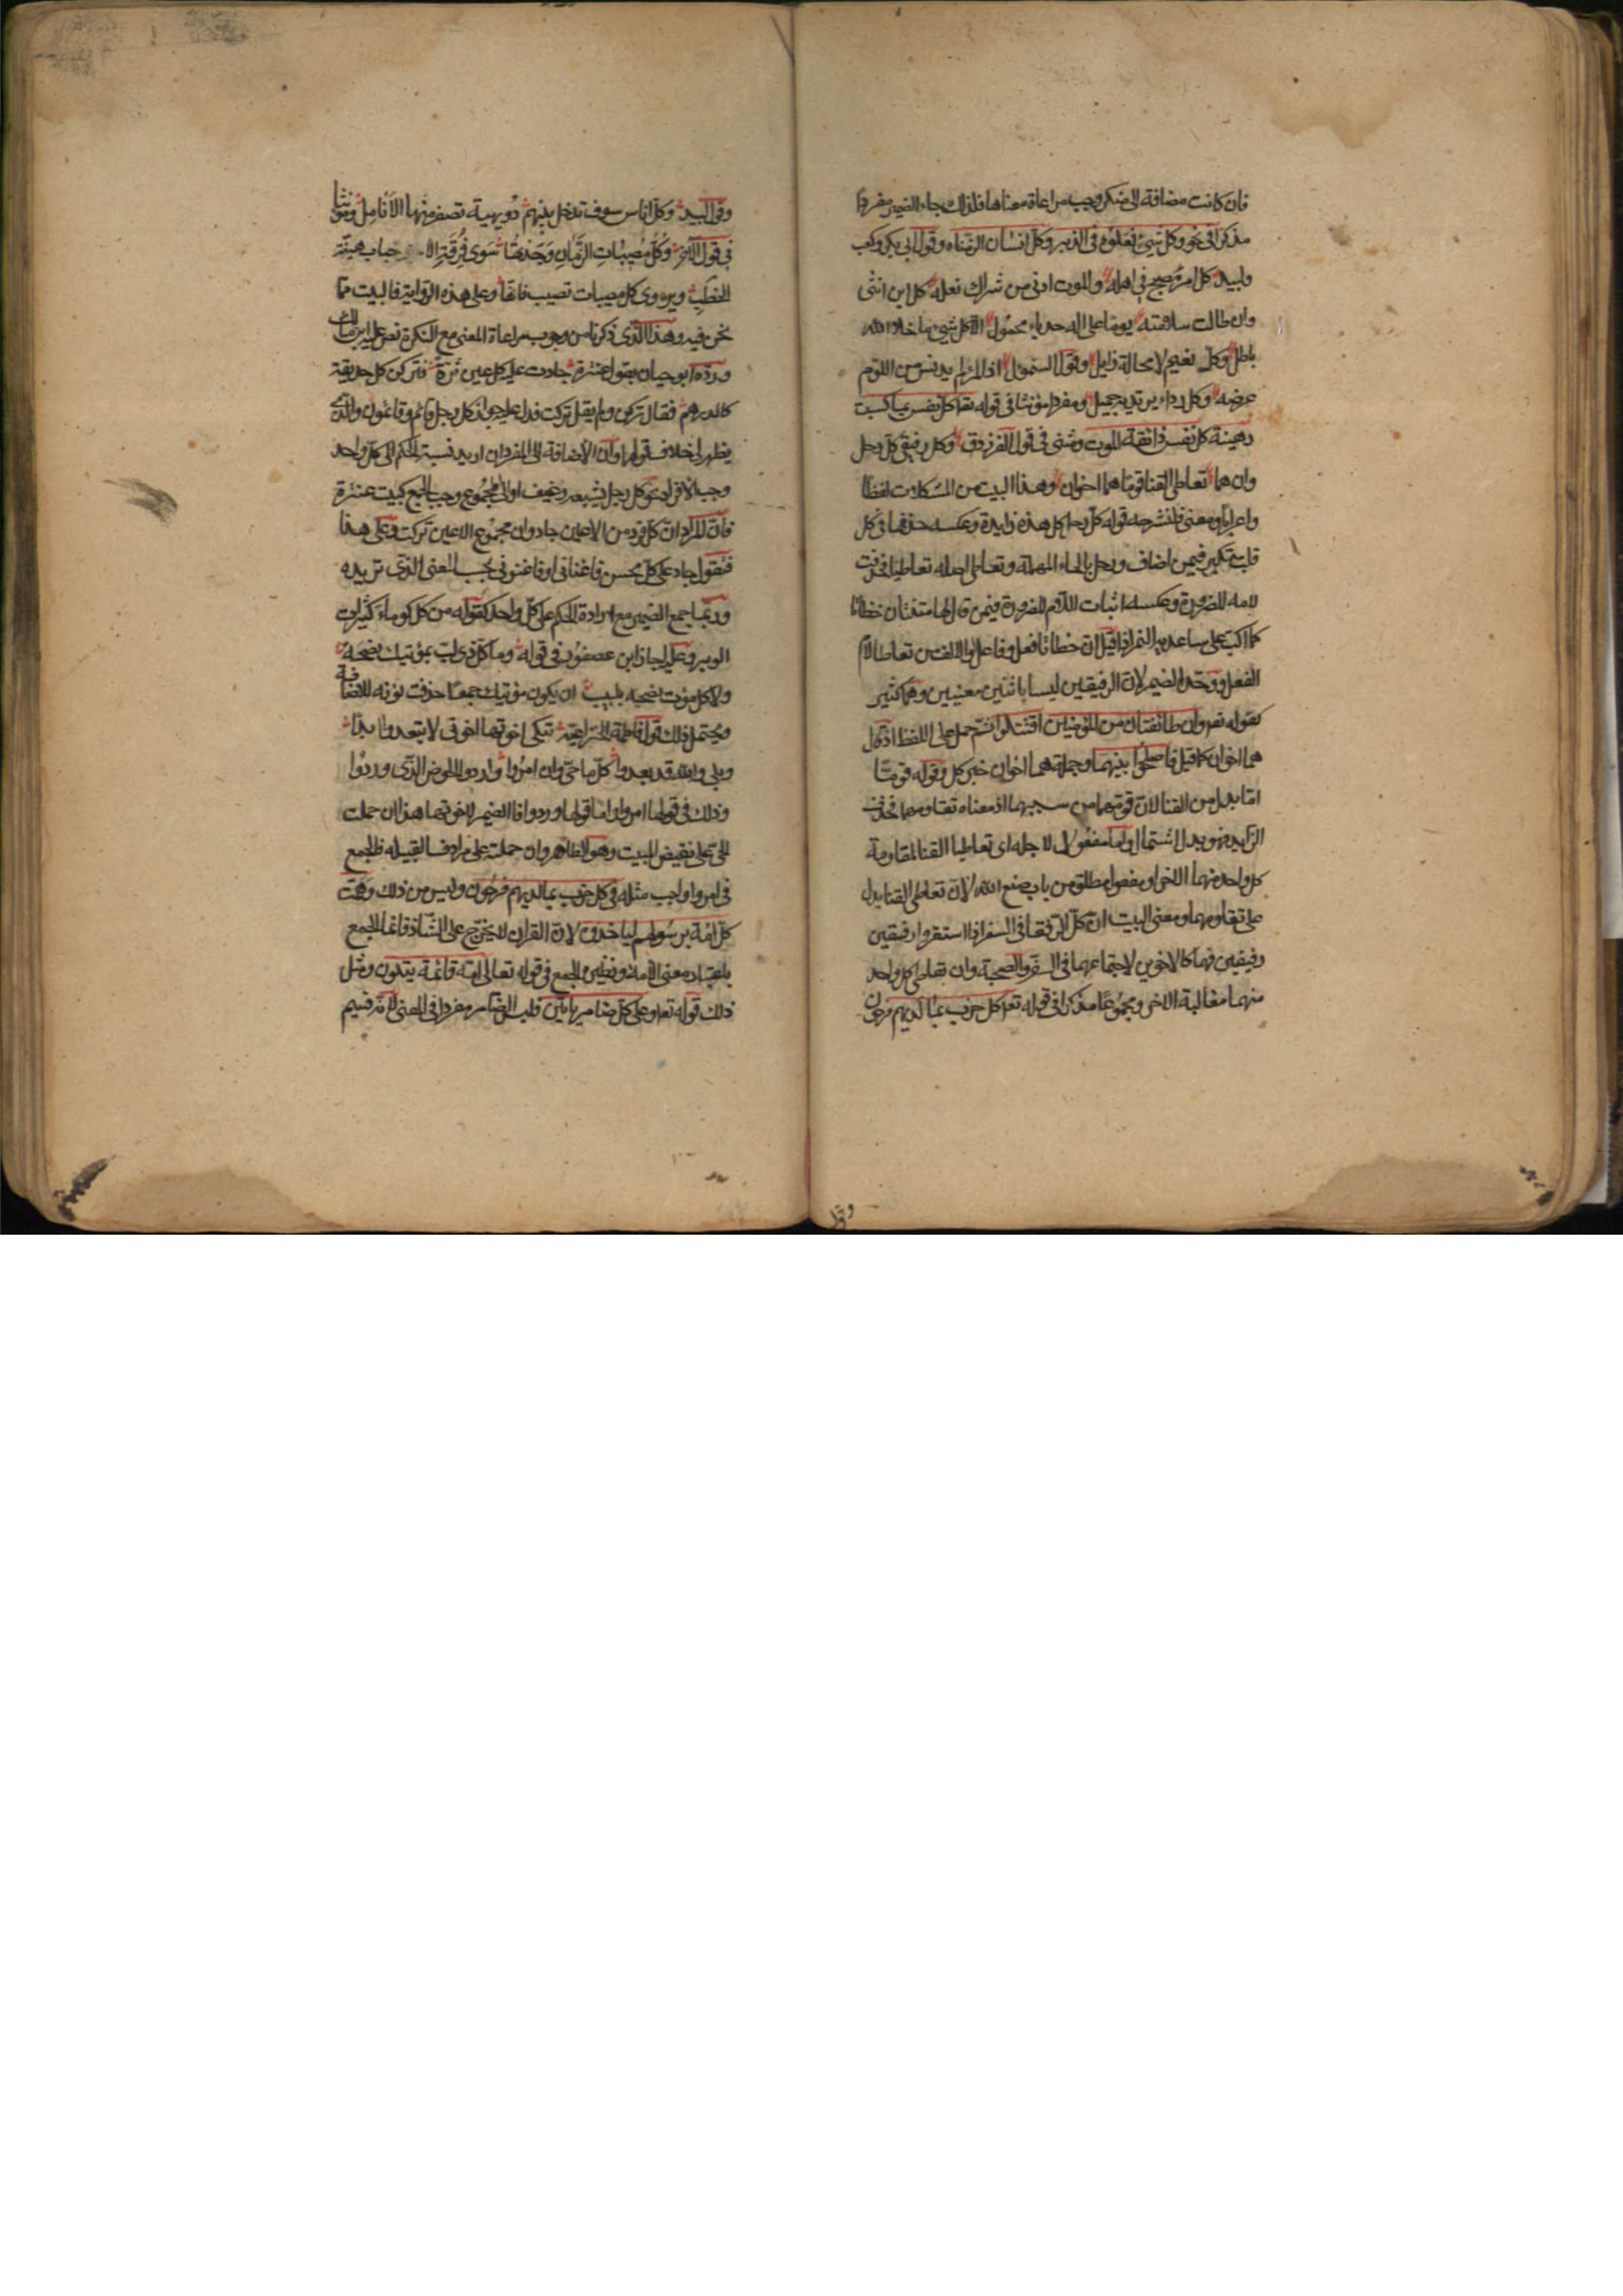 فان كانت مضافة الى منكر وجب مراعاة معناها فلذلك جاء الضمير مفردا
مذكرا فى نحو وكل شيئ فعلوه فى الزبر وكل انسان الزمناه وقول ابى بكر وكعب
ولبيد كل امرئ مصبح فى اهله والموت ادنى من شراك نعله كل ابن انثى
وان طالت سلامته يوما على اله حدباء محمول الا كل شيئ ما خلا الله
باطل وكل نعيم لا محالة زايل وقول السموئل اذا المرء لم يدنس من اللوم
عرضه وكل رداء يرتديه جميل ومفردا مؤنثا فى قوله تعا كل نفس بما كسبت
رهينة كل نفس ذائقة الموت ومثنى فى قول الفرزدق وكل رفيقى كل رحل
وان هما تعاطى القنا قوما هما اخوان وهذا البيت من المشكلات لفظا
واعرابا ومعنى فلنشرحه قوله كل رحل كل هذه زايدة وعكسه حذفها فى كل
قلب متكبر فيمن اضاف ورحل بالحاء المهملة وتعاطى اصله تعاطيا فحذفت
لامه للضرورة وعكسه اثبات اللام للضرورة فيمن قال لها متنتان خظاتا
كما اكب على ساعديه النمر اذا قيل ان خظاتا فعل وفاعل او الالف من تعاطا لام
الفعل ووحد الضمير لان الرفيقين ليسا باثنين معينين وهما كثير
كقوله تعا وان طائفتان من المؤمنين اقتتلوا ثم حمل على اللفظ اذ قال
هما اخوان كما قيل فاصلحوا بينهما وجملة هما اخوان خبر كل وقوله قوما
اما بدل من القنا لان قومهما من سببهما اذ معناه تقاومهما فحذفت
الزايد فهو بدل اشتمال او اما مفعول لاجله اى تعاطيا القنا لمقاومة
كل واحد منهما الاخر او مفعول مطلق من باب صنع الله لان تعاطى القنا يدل
على تقاومهما ومعنى البيت ان كل الرفقا فى السفر اذا استقروا رفيقين
رفيقين فهما كالاخوين لاجتماعهما فى السفر والصحبة وان تعاطى كل واحد
منهما مغالبة الاخر ومجموعا مذكرا فى قوله تعا كل حزب بما لديهم فرحون
وقول
وقول لبيد وكل اناس سوف تدخل بينهم دويهية تصفر منها الانامل ومؤنثا
فى قول الاخر وكل مصيبات الزمان وجدتها سوى فرقة الاحباب هينة
الخطب ويروى كل مصيبات تصيب فانها وعلى هذه الرواية فالبيت مما
نحن فيه وهذا الذى ذكرناه من وجوب مراعاة المعنى مع النكرة نص عليه ابن مالك
ورده ابو حيان بقول عنترة جادت عليه كل عين ثرة فتركن كل حديقة
كالدرهم فقال تركن ولم يقل تركت فدل على جواز كل رجل قائم وقائمون والذى
يظهر لى خلاف قولهما وان الاضافة الى المفرد ان اريد نسبة الحكم الى كل واحد
وجب الافراد نحو كل رجل يشبعه رغيف او الى المجموع وجب الجمع كبيت عنترة
فان المراد ان كل فرد من الاعين جاد وان مجموع الاعين تركت وعلى هذا
فتقول جاد على كل محسن فاغنانى او فاغنونى بحسب المعنى الذى تريده
وربما جمع الضمير مع ارادة الحكم على كل واحد كقوله من كل كوماء كثيرات
الوبر وعليه اجاز ابن عصفور فى قوله وما كل ذى لب بمؤتيك نصحه
ولا كل مؤت نصحه بلبيب ان يكون مؤتيك جمعا حذفت نونه للاضافة
ويحتمل ذلك قول فاطمة الخزاعية تبكى اخوتها اخوتى لا تبعدوا ابدا
وبلى والله قد بعدوا كل ما حى وان امروا واردوا الحوض الذى وردوا
وذلك فى قولها امروا اما قولها وردوا فالضمير لاخوتها هذا ان حملت
الحى على نقيض الميت وهو الظاهر وان حملته على مرادف القبيلة فالجمع
فى امروا واجب مثله فى كل حزب بما لديهم فرحون وليس من ذلك وهمت
كل امة برسولهم لياخذوه لان القران لا يخرج على الشاذ فانما الجمع
باعتبار معنى الامة ونظيره الجمع فى قوله تعالى امة قائمة يتلون ومثل
ذلك قوله تعا وعلى كل ضامر ياتين فليس الضامر مفردا فى المعنى لانه قسيم